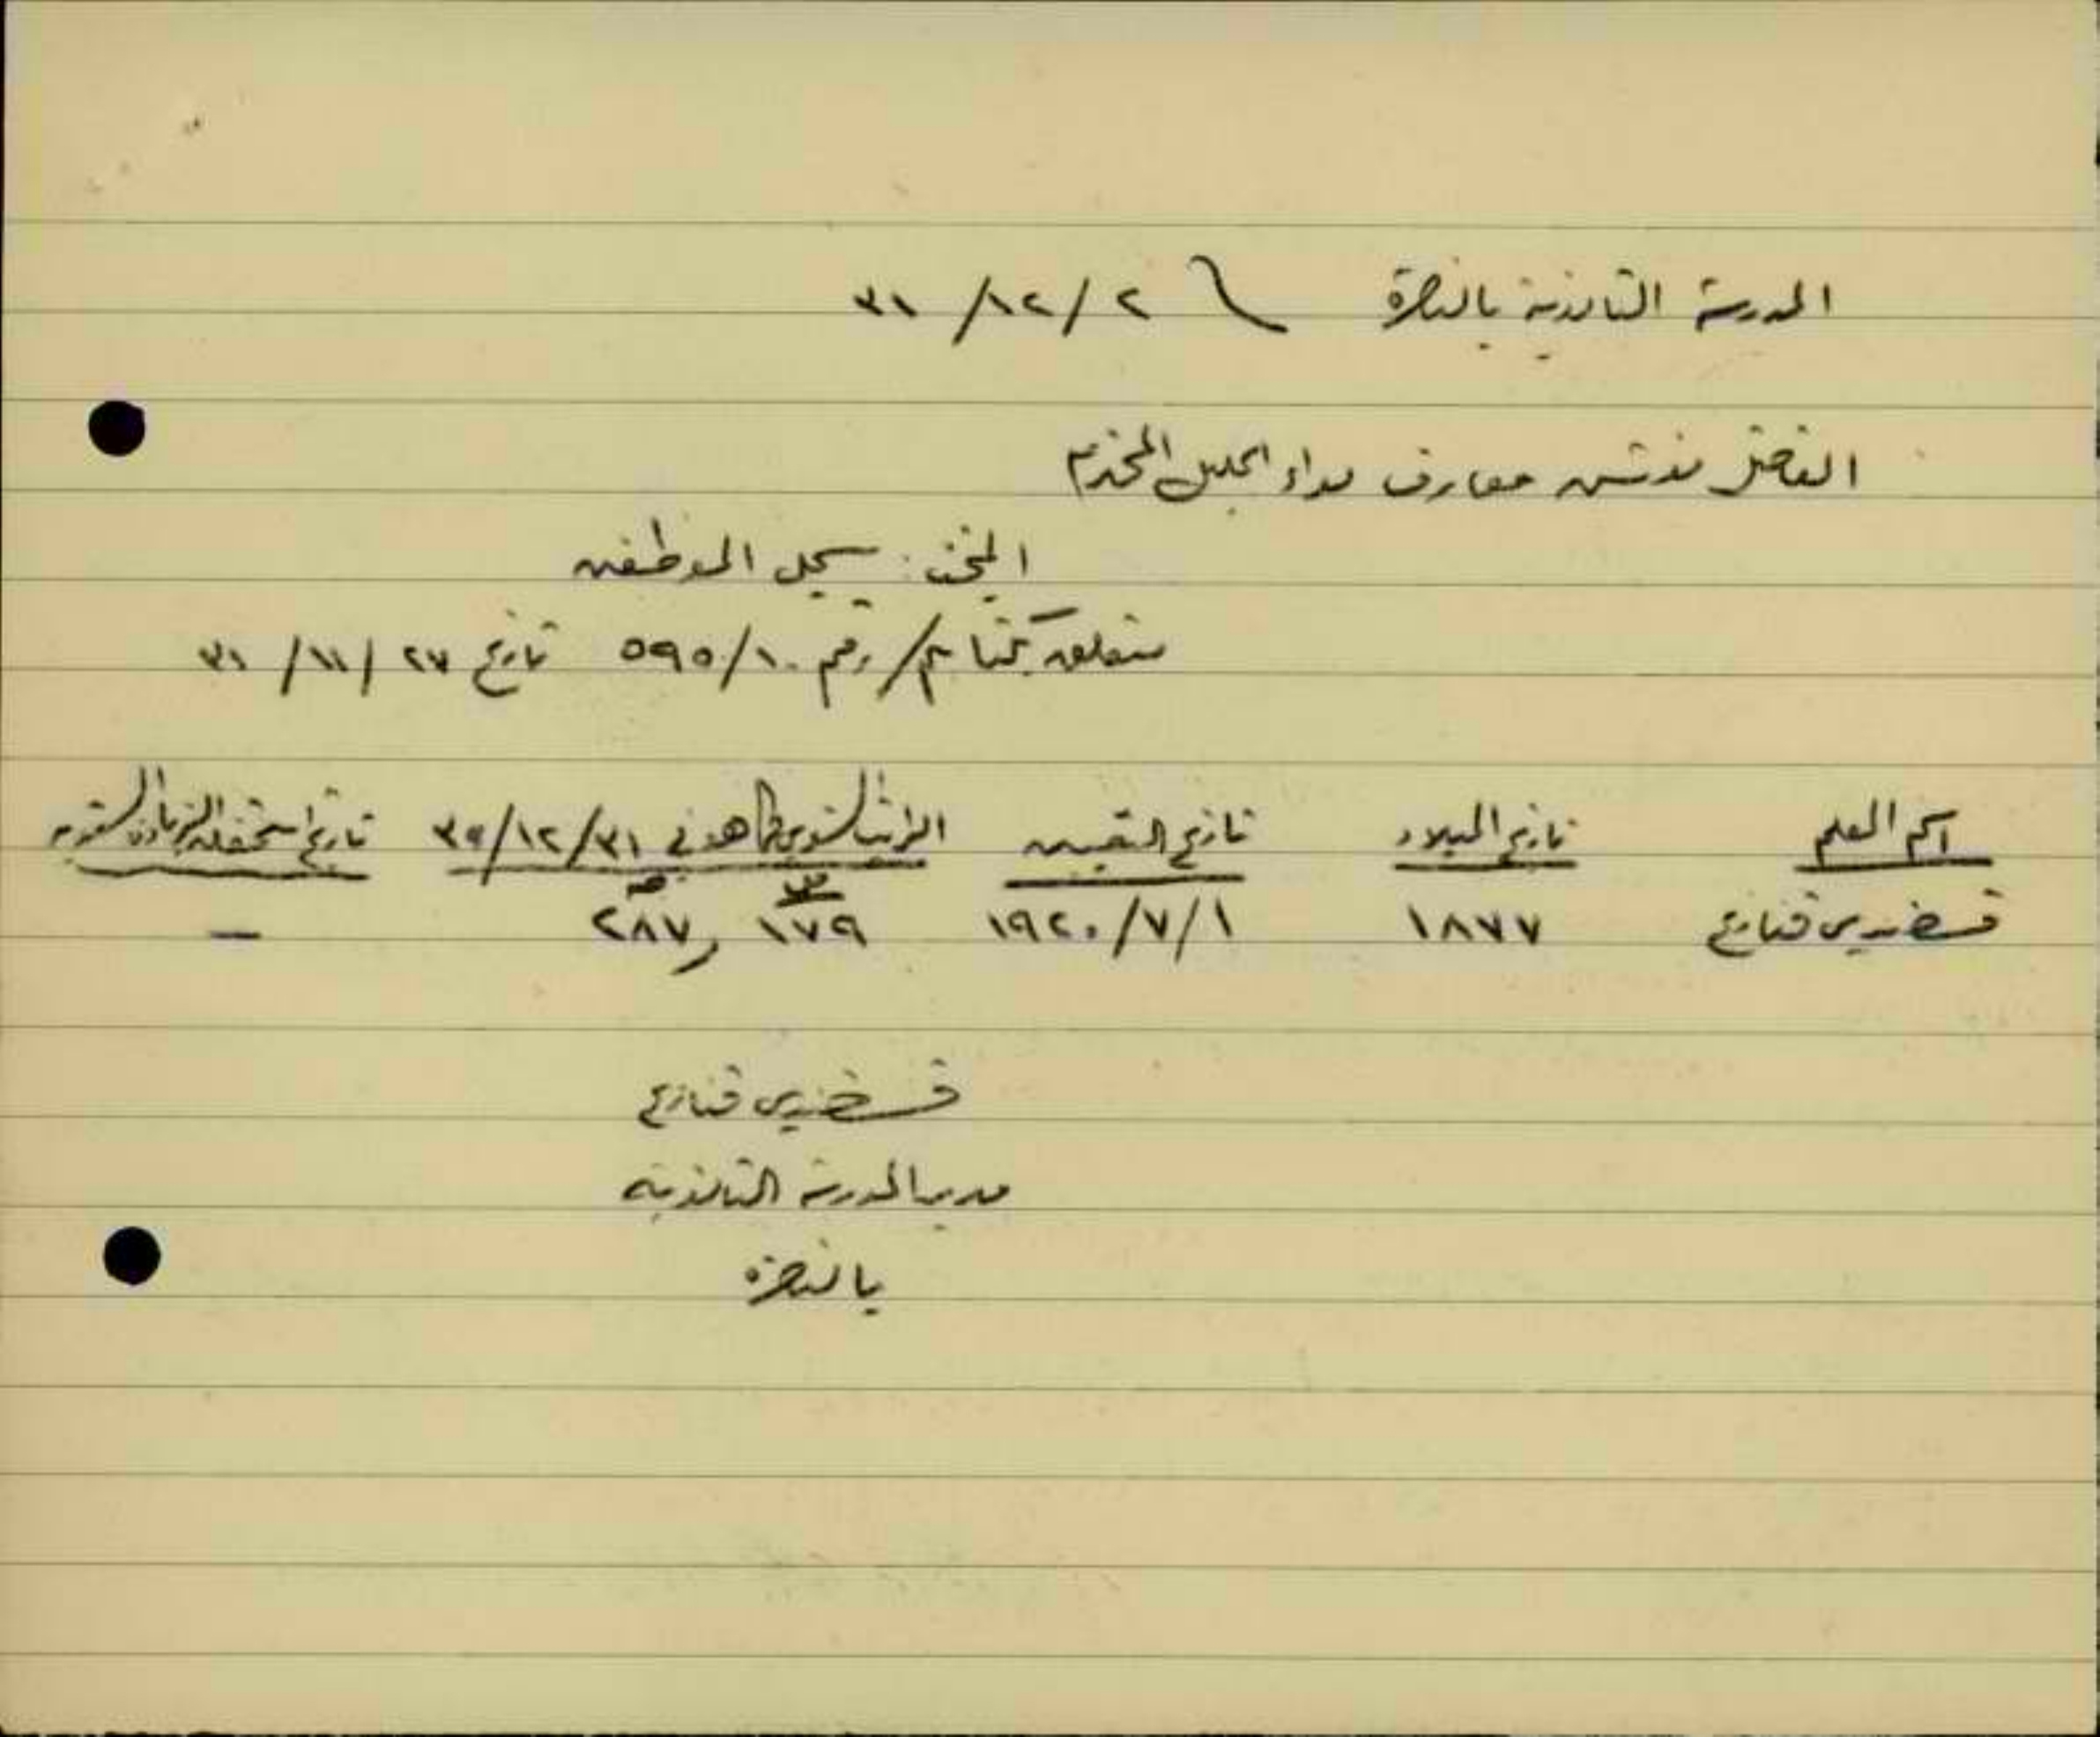 المدرسة الثانوية بالناصرة ٢/١٢/٣١
الفاضل مفتش معارف لواء الجليل المحترم
البحث: سجل الموظفين
متعلق بكتابكم/رقم ٥٩٥/١٠ تاريخ ٢٧/١١/٣١
اسم المعلم تاريخ الميلاد تاريخ التعيين الراتب السنوي كما هو في ٣١/١٢/ تاريخ استحقاق الزيادة السنوية
قسطندي قنازع ١٨٧٧ ١/٧/١٩٢٠ ١٧٩ ر٢٨٧ —
قسطندي قنازع
مدير المدرسة الثانوية
بالناصرة